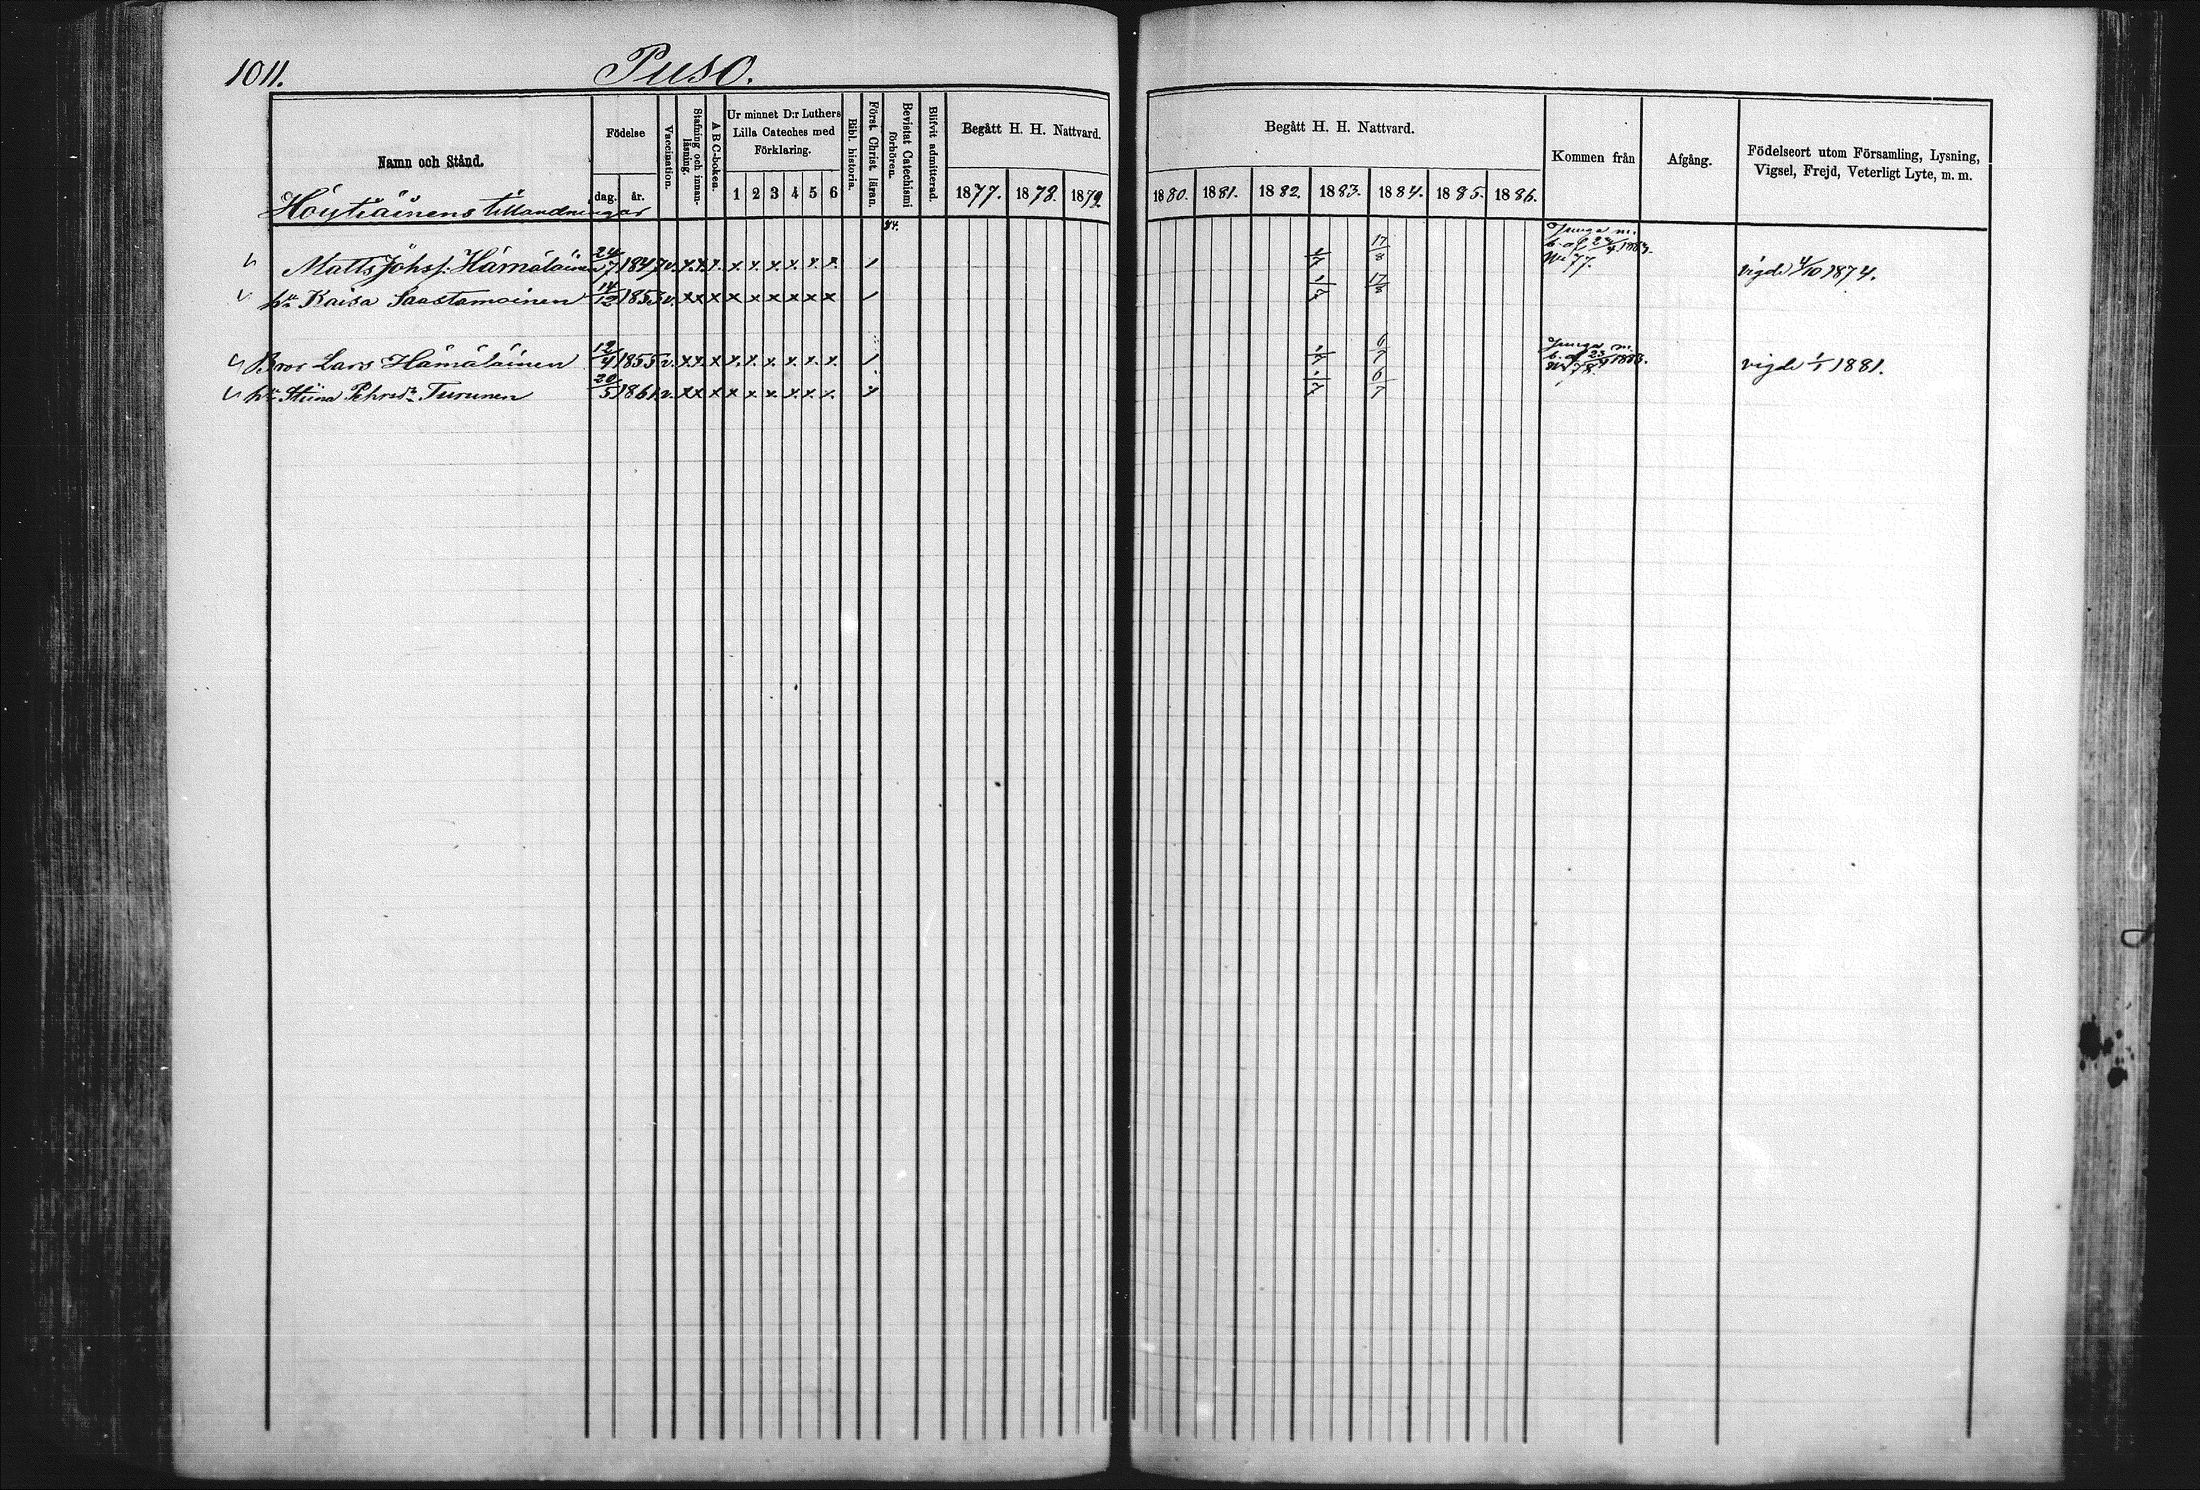 1011.
Puso.
Namn och Stånd.
Födelse
dag. år.
Vaccination.
Stafning och innan-läsning.
A B C-boken.
Ur minnet D:r Luthers
Lilla Cateches med
Förklaring.
1 2 3 4 5 6
Bibl. historia.
Först. Christ. läran.
Bevistat Catechismi förhören.
Blifvit admitterad.
Begått H. H. Nattvard.
1877. 1878. 1879.
Begått H. H. Nattvard.
1880. 1881. 1882. 1883. 1884. 1885. 1886.
Kommen från
Afgång.
Födelseort utom Församling, Lysning,
Vigsel, Frejd, Veterligt Lyte, m. m.
Höytiäinens tillandningar
84.
Matts Johsf. Hämäläinen 24/7 1847 v. x. x. x. x. x. x. x. x. x. / 1/7 17/8 b. af 1883. No 77. vigde 4/10 1874.
hu Kaisa Saastamoinen 14/12 1853 v. x x x x x x x x x / 1/7 17/8
Bror Lars Hämäläinen 12/4 1855 v. x x x x. x. x. x. x. x. / 1/7 6/7 b. af 23/4 1883. No 78. vigde 1/1 1881.
hu Stiina Pehrsdr Turunen 20/5 1861 v. x x x x x x x. x. x. 1/7 6/7